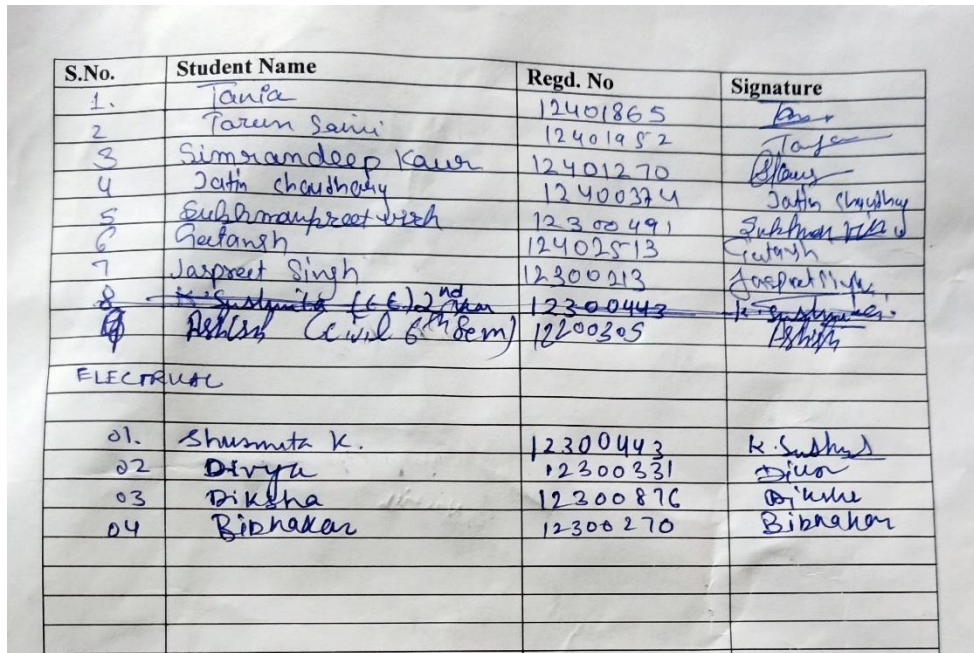 S.No. Student Name Regd. No Signature
1. Tania 12401865
2 Tarun Saini 12401952
3 Simrandeep Kaur 12401270
4 Jatin Choudhary 12400374 Jatin Choudhary
5 Sukhmanpreet virk 12300491
6 Geetansh 12402513 Geetansh
7 Jaspreet Singh 12300213 Jaspreet Singh
8 K. Sushmita (EE) 2nd Year 12300443 K. Sushmita
Ashish (Civil 6th Sem) 12200305 Ashish
ELECTRICAL
01. Shusmita K. 12300443
02 Divya 12300331
03 Diksha 12300876 Diksha
04 Bibhakar 12300270 Bibhakar